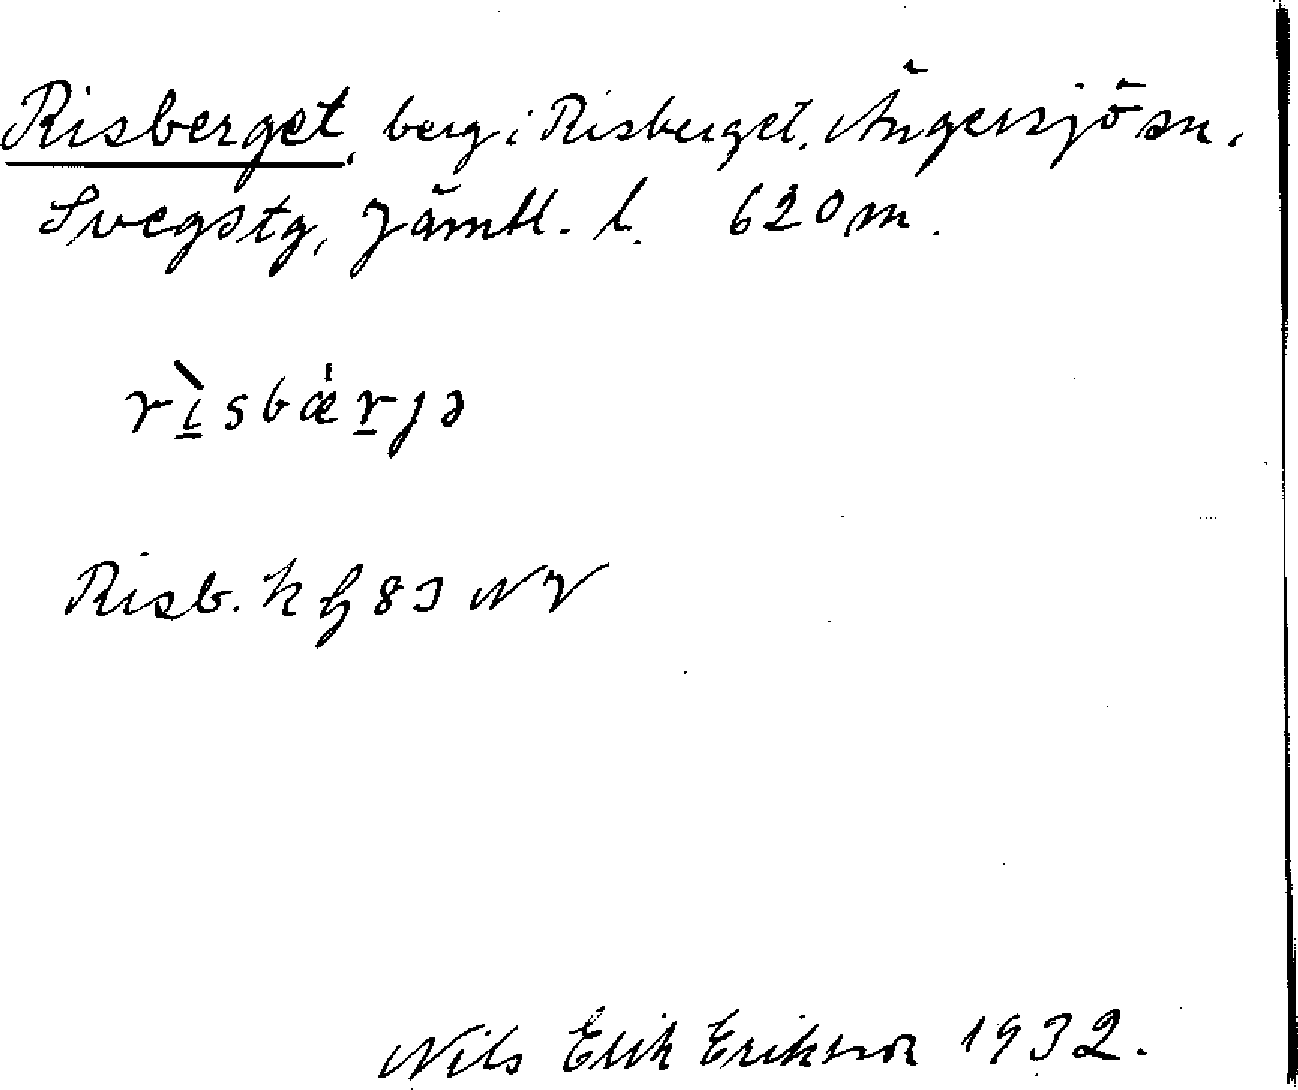 Risberget, berg i Risberget, Ängersjö sn.
Svegs tg, Jämtl. l. 620 m.
rìsbærjə
Risb. k h 83 NV
Nils Erik Eriksson 1932.